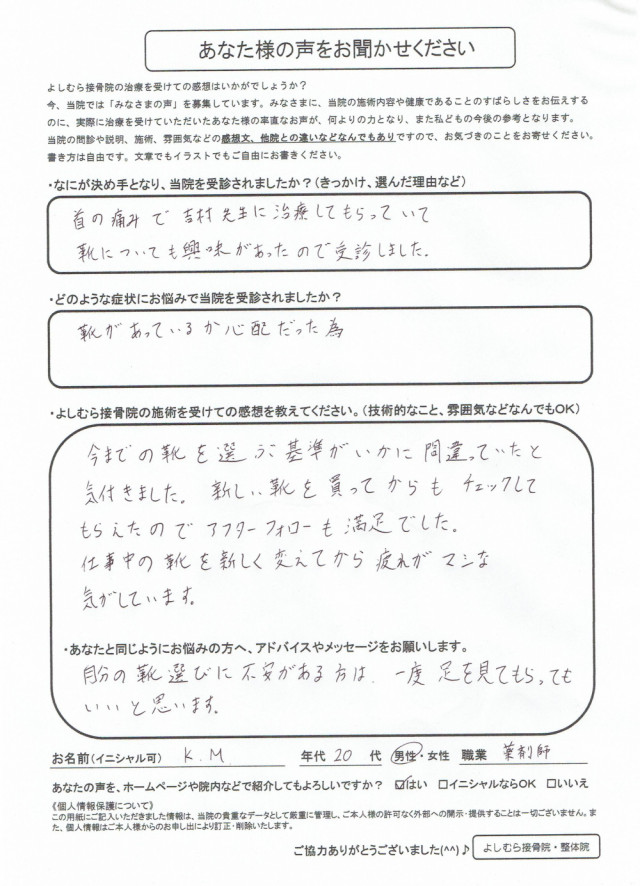 あなた様の声をお聞かせください
よしむら接骨院の治療を受けての感想はいかがでしょうか?
今、当院では「みなさまの声」を募集しています。みなさまに、当院の施術内容や健康であることのすばらしさをお伝えする
のに、実際に治療を受けていただいたあなた様の率直なお声が、何よりの力となり、また私どもの今後の参考となります。
当院の問診や説明、施術、雰囲気などの感想文、他院との違いなどなんでもありですので、お気づきのことをお寄せください。
書き方は自由です。文章でもイラストでもご自由にお書きください。
・なにが決め手となり、当院を受診されましたか?(きっかけ、選んだ理由など)
首の痛みで吉村先生に治療してもらっていて
靴についても興味があったので受診しました.
・どのような症状にお悩みで当院を受診されましたか?
靴があっているか心配だった為
・よしむら接骨院の施術を受けての感想を教えてください。(技術的なこと、雰囲気などなんでもOK)
今までの靴を選ぶ基準がいかに間違っていたと
気付きました。新しい靴を買ってからもチェックして
もらえたのでアフターフォローも満足でした。
仕事中の靴を新しく変えてから疲れがマシな
気がしています。
・あなたと同じようにお悩みの方へ、アドバイスやメッセージをお願いします。
自分の靴選びに不安がある方は、一度足を見てもらっても
いいと思います。
お名前(イニシャル可) K.M 年代 20 代 男性・女性 職業 薬剤師
あなたの声を、ホームページや院内などで紹介してもよろしいですか? ☑はい □イニシャルならOK □いいえ
《個人情報保護について》
この用紙にご記入いただきました情報は、当院の貴重なデータとして厳重に管理し、ご本人様の許可なく外部への開示・提供することは一切ございません。ま
た、個人情報はご本人様からのお申し出により訂正・削除いたします。
ご協力ありがとうございました(^^)♪ よしむら接骨院・整体院